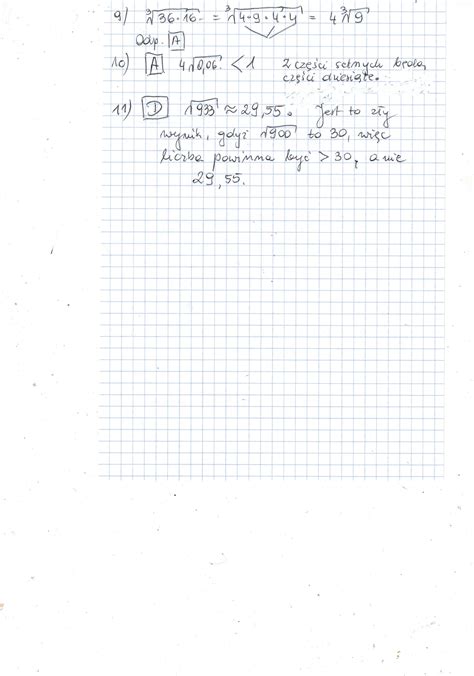 9) ∛36·16 = ∛4·9·4·4 = 4∛9
Odp. A
10) A 4√0,06 < 1 Z części setnych będą
części dziesiąte.
11) D √933 ≈ 29,55. Jest to zły
wynik, gdyż √900 to 30, więc
liczba powinna być > 30, a nie
29,55.